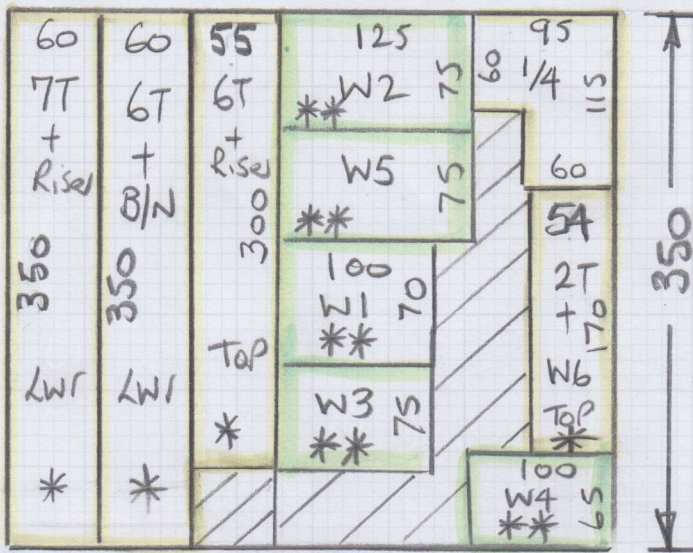 60
7T
+
Riser
350
LWr
*
60
6T
+
B/N
350
LWr
*
55
6T
+
Riser
300
Top
*
125
W2
75
**
W5
75
**
100
W1
70
**
W3
75
**
95
60
1/4
115
60
54
2T
+
170
W6
Top
*
100
W4
65
**
350